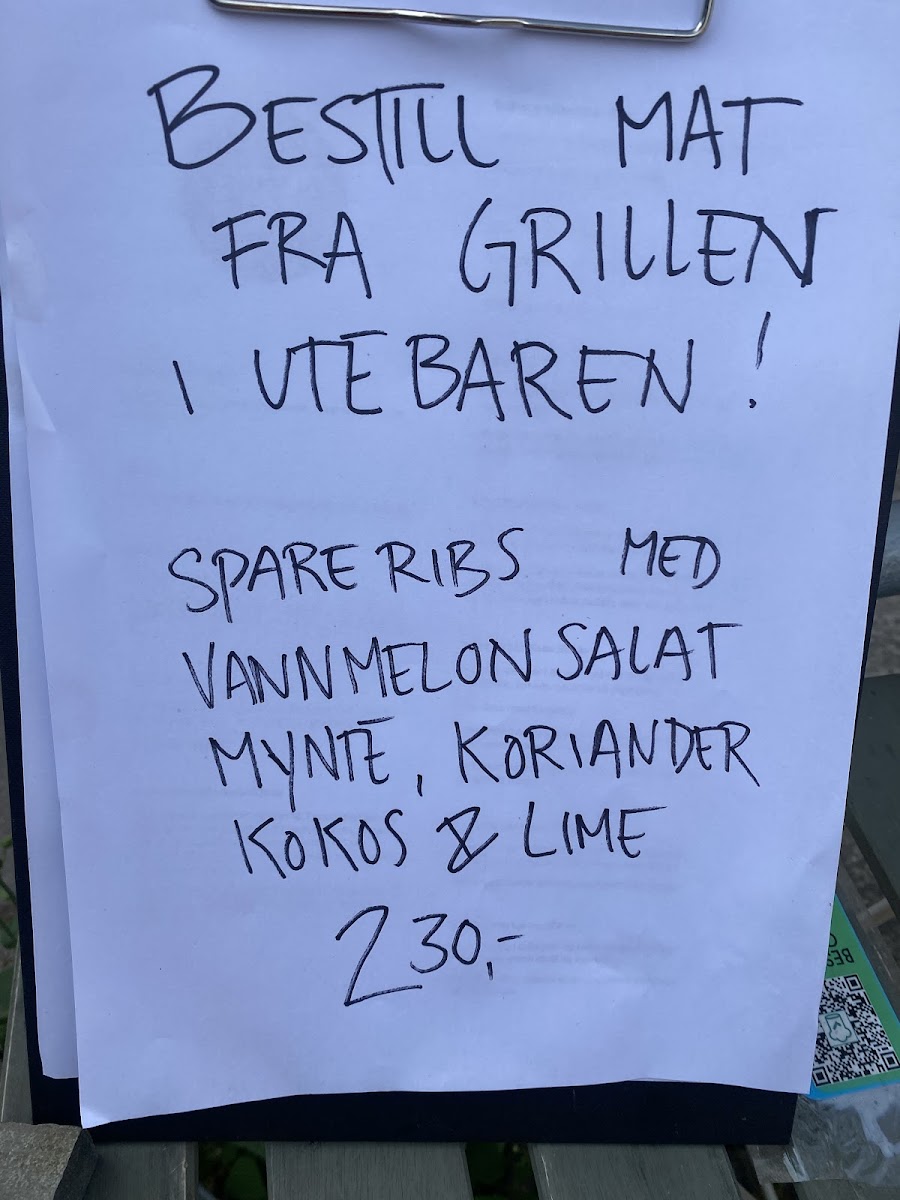 BESTILL MAT
FRA GRILLEN
I UTEBAREN!
SPARERIBS MED
VANNMELONSALAT
MYNTE, KORIANDER
KOKOS & LIME
230,-